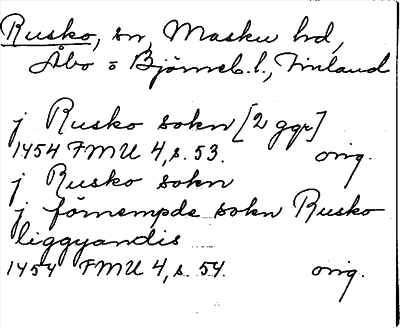 Rusko, sn, Masku hd,
Åbo o Björneb. l., Finland
j Rusko sokn [2 ggr]
1454 FMU 4, s. 53. orig.
j Rusko sokn
j förnempde sokn Rusko
liggyandis
1454 FMU 4, s. 54. orig.